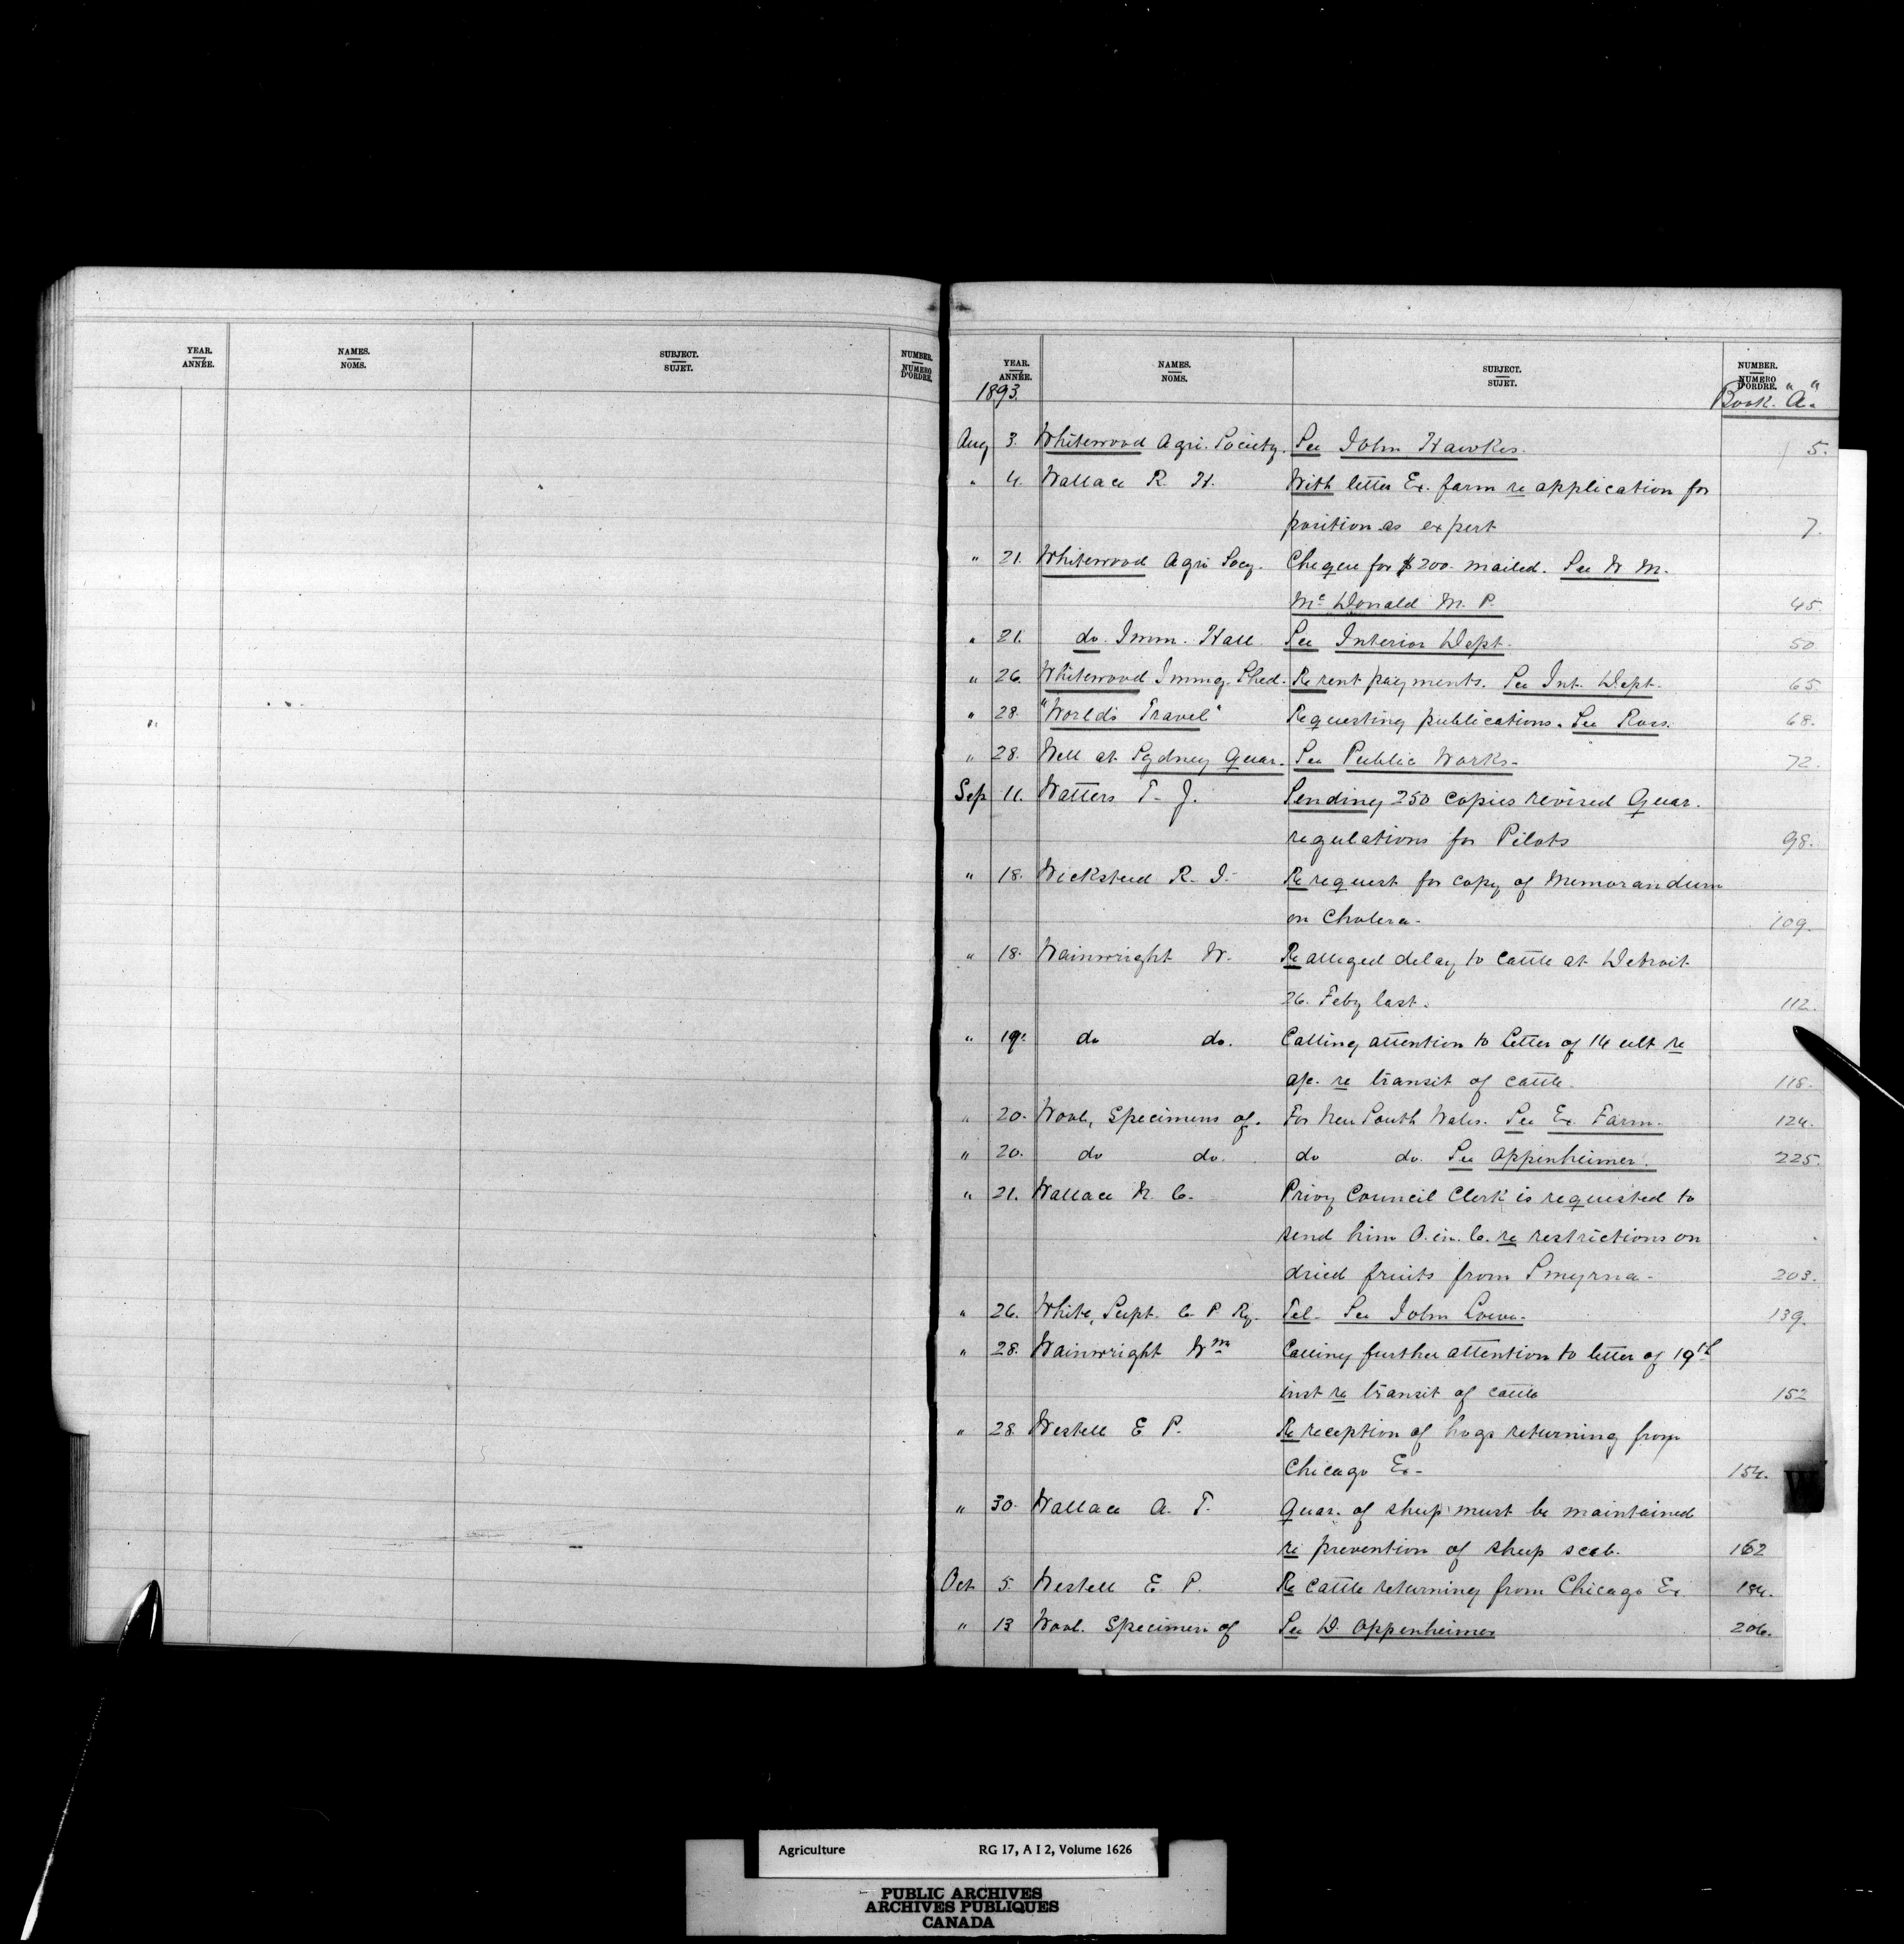 YEAR. NAMES. SUBJECT. NUMBER.
ANNÉE. NOMS. SUJET. NUMERO D'ORDRE.
YEAR. NAMES. SUBJECT. NUMBER.
ANNÉE. NOMS. SUJET. NUMERO D'ORDRE.
1893. Book "A"
Aug 3. Whitewood Agri. Society. See John Hawkes. 5.
" 4. Wallace R. H. With letter Ex. farm re application for
position as expert 7.
" 21. Whitewood Agri Socy. Cheque for $200. mailed. See W M.
McDonald M. P. 45.
" 21. do. Imm. Hall See Interior Dept. 50.
" 26. Whitewood Immig. Shed. Re rent payments. See Int. Dept. 65.
" 28. "World's Travel" Requesting publications. See Ross. 68.
" 28. Well at Sydney Quar. See Public Works. 72.
Sep 11. Watters T. J. Sending 250 copies revised Quar.
regulations for Pilots 98.
" 18. Wicksteed R. J. Re request for copy of Memorandum
on Cholera. 109.
" 18. Wainwright W. Re alleged delay to cattle at Detroit
26. Feby last. 112.
" 19. do do. Calling attention to letter of 14 ult re
a/c. re transit of cattle. 118.
" 20. Wool, Specimens of. For New South Wales. See Ex Farm. 124.
" 20. do do. do do. See Oppenheimer. 225.
" 21. Wallace N. C. Privy Council Clerk is requested to
send him O. in. C. re restrictions on
dried fruits from Smyrna. 203.
" 26. White, Supt. C P Ry. Tel. See John Lowe. 139.
" 28. Wainwright Wm Calling further attention to letter of 19th
inst re transit of cattle 152
" 28. Westell E P. Re reception of hogs returning from
Chicago Ex. 154.
" 30. Wallace A. T. Quar. of sheep must be maintained
re prevention of sheep scab. 162
Oct 5. Westell E. P. Re cattle returning from Chicago Ex. 184.
" 13 Wool. Specimen of See D. Oppenheimer 206.
W
Agriculture RG 17, A I 2, Volume 1626
PUBLIC ARCHIVES
ARCHIVES PUBLIQUES
CANADA